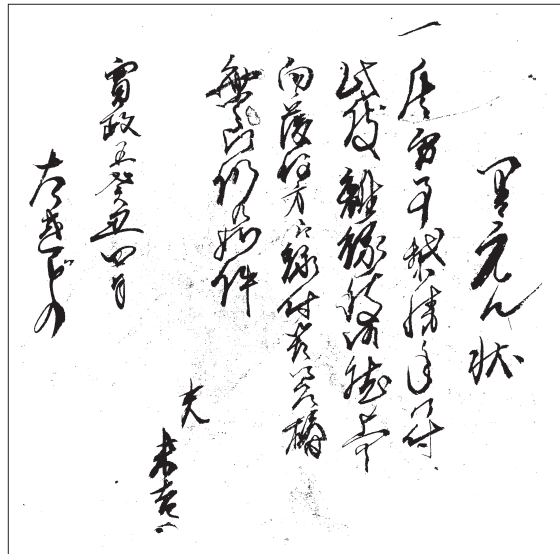 里えん状
一 其方事我等勝手ニ付
此度離縁致候然上者
向後何方江縁付候共差構
無之仍如件
寛政五癸丑四月
夫